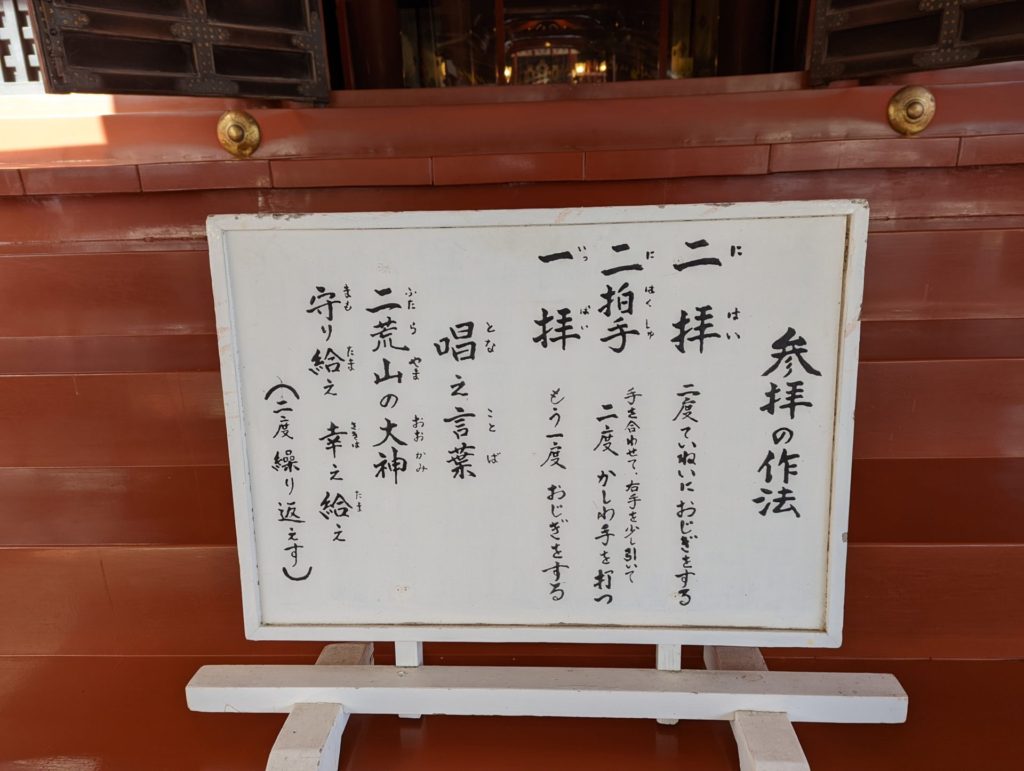 参拝の作法
二拝 二度ていねいにおじぎをする
にはい
二拍手 手を合わせて、右手を少し引いて
にはくしゅ
二度 かしわ手を打つ
一拝 もう一度 おじぎをする
いっぱい
唱え言葉
とな ことば
二荒山の大神
ふたらやま おおかみ
守り給え 幸え給え
まも たま さきは たま
(二度繰り返えす)